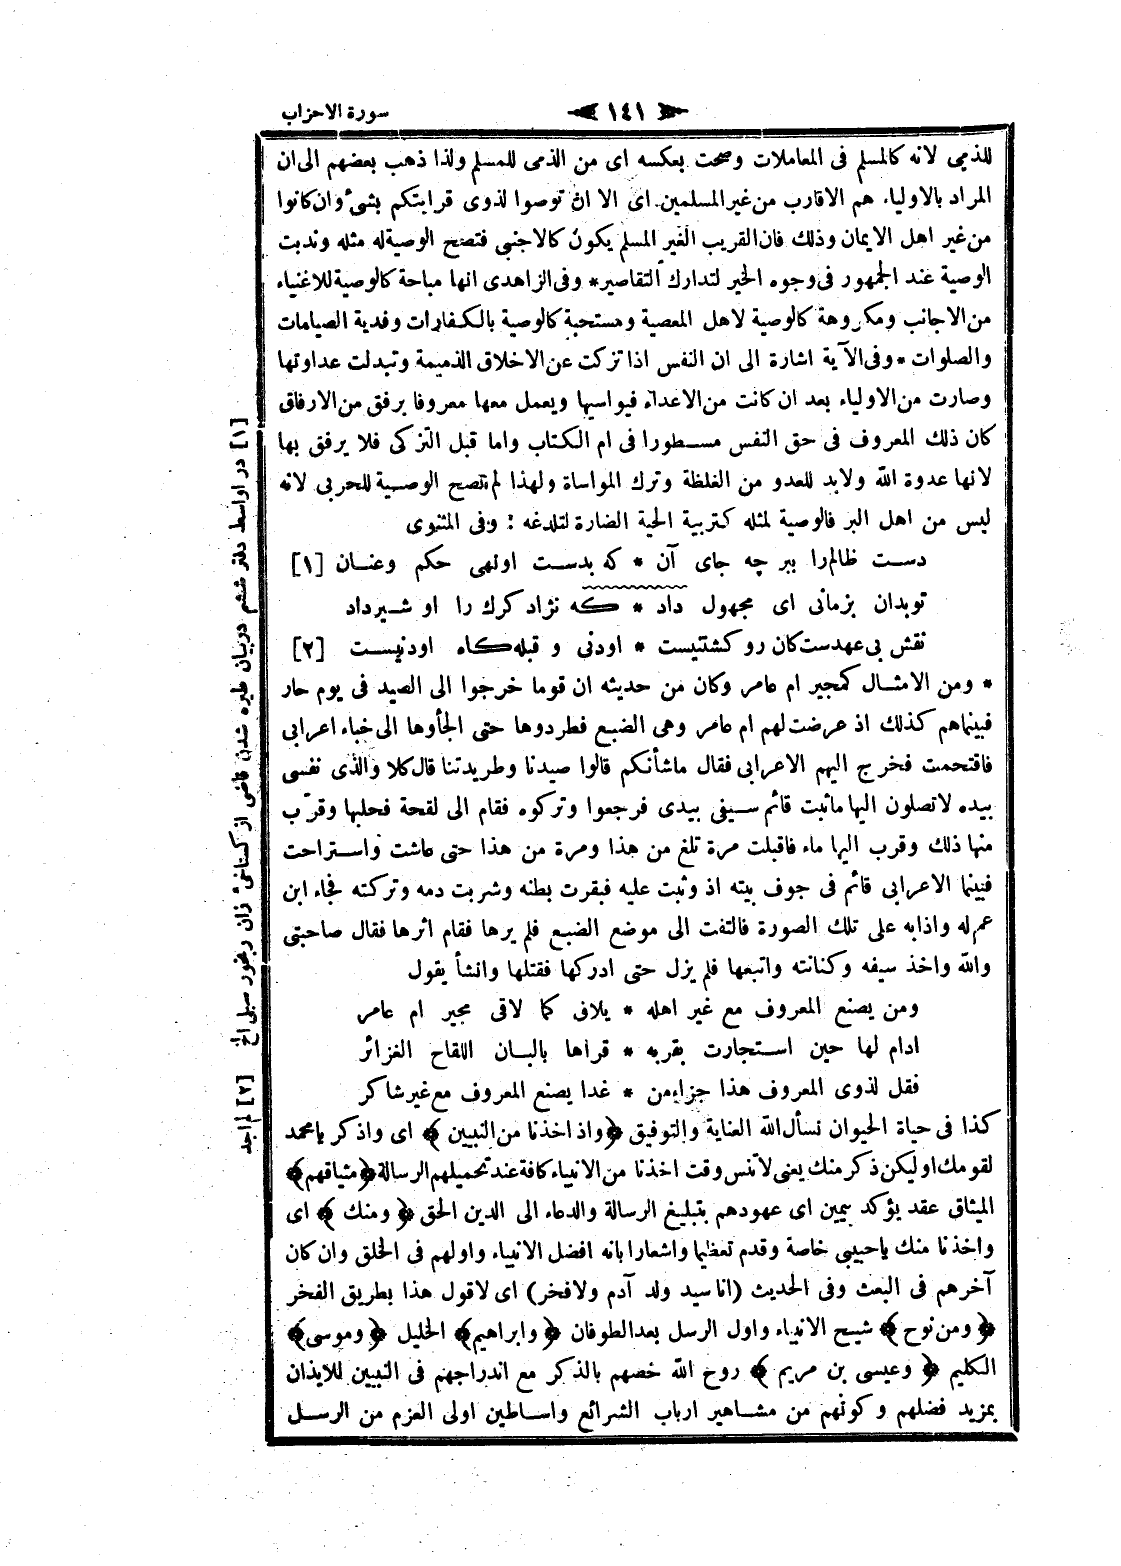 سورة الاحزاب
١٤١
للذمى لانه كالمسلم فى المعاملات وصحت بعكسه اى من الذمى للمسلم ولذا ذهب بعضهم الى ان
المراد بالاولياء هم الاقارب من غير المسلمين اى الا ان توصوا لذوى قرابتكم بشئ وان كانوا
من غير اهل الايمان وذلك فان القريب الغير المسلم يكون كالاجنبى فتصح الوصية له مثله وندبت
الوصية عند الجمهور فى وجوه الخير لتدارك التقاصير * وفى الزاهدى انها مباحة كالوصية للاغنياء
من الاجانب ومكروهة كالوصية لاهل المعصية ومستحبة كالوصية بالكفارات وفدية الصيامات
والصلوات * وفى الآية اشارة الى ان النفس اذا تزكت عن الاخلاق الذميمة وتبدلت عداوتها
وصارت من الاولياء بعد ان كانت من الاعداء فيواسيها ويعمل معها معروفا برفق من الارفاق
كان ذلك المعروف فى حق النفس مسطورا فى ام الكتاب واما قبل التزكى فلا يرفق بها
لانها عدوة الله ولابد للعدو من الغلظة وترك المواساة ولهذا لم تصح الوصية للحربى لانه
ليس من اهل البر فالوصية لمثله كتربية الحية الضارة لتلدغه : وفى المثنوى
دست ظالم را ببر چه جاى آن * كه بدست او نهى حكم وعنان [١]
توبدان بزمانى اى مجهول داد * كه نژاد كرك را او شير داد
نقش بى عهدست كان رو كشتنيست * اودنى و قبله كاه اودنيست [٢]
* ومن الامثال كمجير ام عامر وكان من حديثه ان قوما خرجوا الى الصيد فى يوم حار
فبينماهم كذلك اذ عرضت لهم ام عامر وهى الضبع فطردوها حتى الجأوها الى خباء اعرابى
فاقتحمت فخرج اليهم الاعرابى فقال ماشأنكم قالوا صيدنا وطريدتنا قال كلا والذى نفسى
بيده لا تصلون اليها ماثبت قائم سيفى بيدى فرجعوا وتركوه فقام الى لقحة فحلبها وقرّب
منها ذلك وقرب اليها ماء فاقبلت مرة تلغ من هذا ومرة من هذا حتى عاشت واستراحت
فبينما الاعرابى قائم فى جوف بيته اذ وثبت عليه فبقرت بطنه وشربت دمه وتركته فجاء ابن
عم له واذابه على تلك الصورة فالتفت الى موضع الضبع فلم يرها فقام اثرها فقال صاحبتى
والله واخذ سيفه وكنانته واتبعها فلم يزل حتى ادركها فقتلها وانشأ يقول
ومن يصنع المعروف مع غير اهله * يلاف كما لاقى مجير ام عامر
ادام لها حين استجارت بقربه * قراها بالبان اللقاح الغزائر
فقل لذوى المعروف هذا جزاء من * غدا يصنع المعروف مع غير شاكر
كذا فى حياة الحيوان نسأل الله العناية والتوفيق ﴿واذ اخذنا من النبيين﴾ اى واذكر يا محمد
لقومك او ليكن ذكر منك يعنى لا تنس وقت اخذنا من الانبياء كافة عند تحميلهم الرسالة ﴿ميثاقهم﴾
الميثاق عقد يؤكد بيمين اى عهودهم بتبليغ الرسالة والدعاء الى الدين الحق ﴿ومنك﴾ اى
واخذنا منك يا حبيبى خاصة وقدم تعظيما واشعارا بانه افضل الانبياء واولهم فى الخلق وان كان
آخرهم فى البعث وفى الحديث (انا سيد ولد آدم ولا فخر) اى لا قول هذا بطريق الفخر
﴿ومن نوح﴾ شيخ الانبياء واول الرسل بعد الطوفان ﴿وابراهيم﴾ الخليل ﴿وموسى﴾
الكليم ﴿وعيسى بن مريم﴾ روح الله خصهم بالذكر مع اندراجهم فى النبيين للايذان
بمزيد فضلهم و كونهم من مشاهير ارباب الشرائع واساطين اولى العزم من الرسل
[١] در اواسط دفتر ششم دربيان طيره شدن قاضى از كستاخئ زان رنجور سيلى الخ [٢] لم اجد